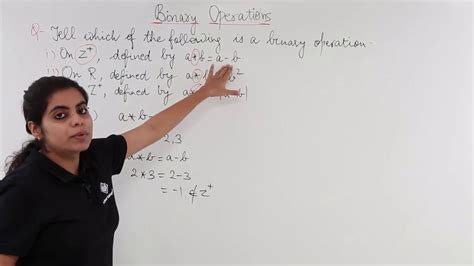 Binary Operations
Q- Tell which of the following is a binary operation.
i) On Z⁺, defined by a*b = a-b
ii) On R, defined by a* b²
Z⁺, defined by a* b|
) a*b
2,3
a*b = a-b
2*3 = 2-3
= -1 ∉ Z⁺